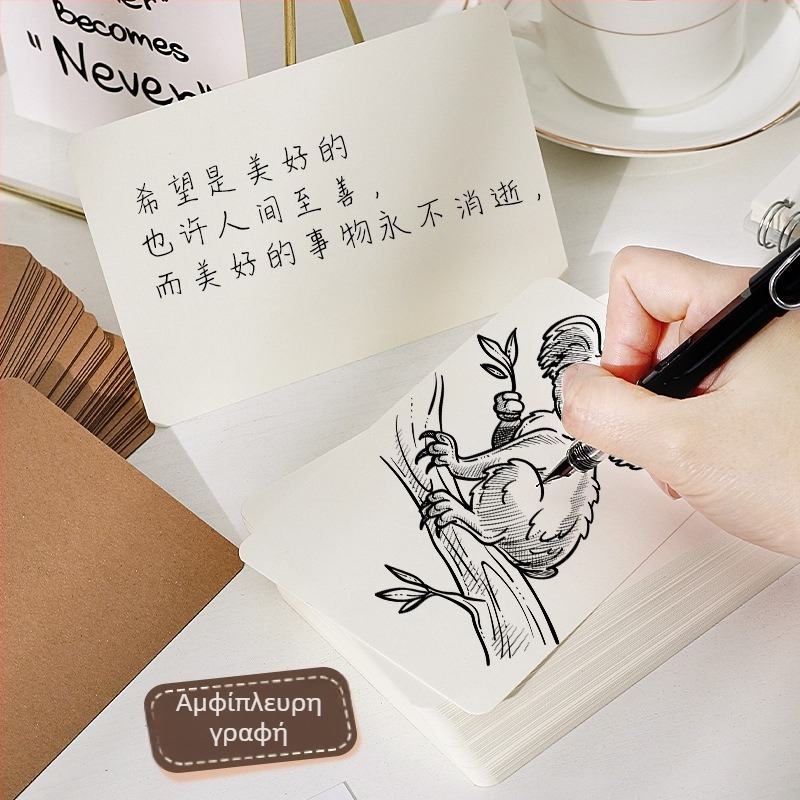 becomes
"Never"
希望是美好的
也许人间至善，
而美好的事物永不消逝，
Αμφίπλευρη
γραφή